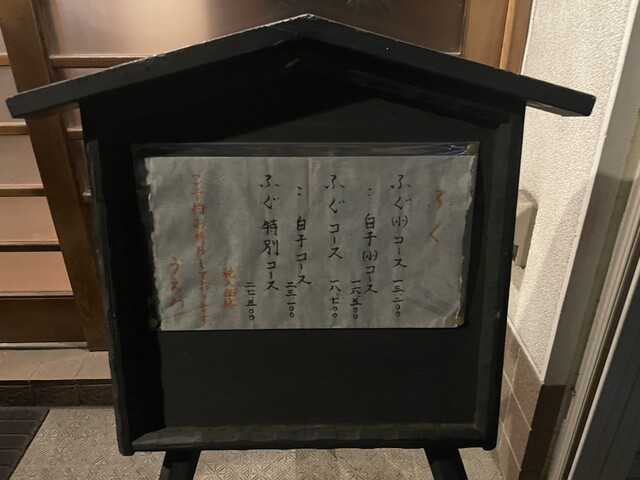 ふぐ
ふぐ(小)コース 一三二〇〇
〃 白子(小)コース 一六五〇〇
ふぐコース 一八七〇〇
〃 白子コース 二三一〇〇
ふぐ特別コース 二七五〇〇
ご予約お待ちしております